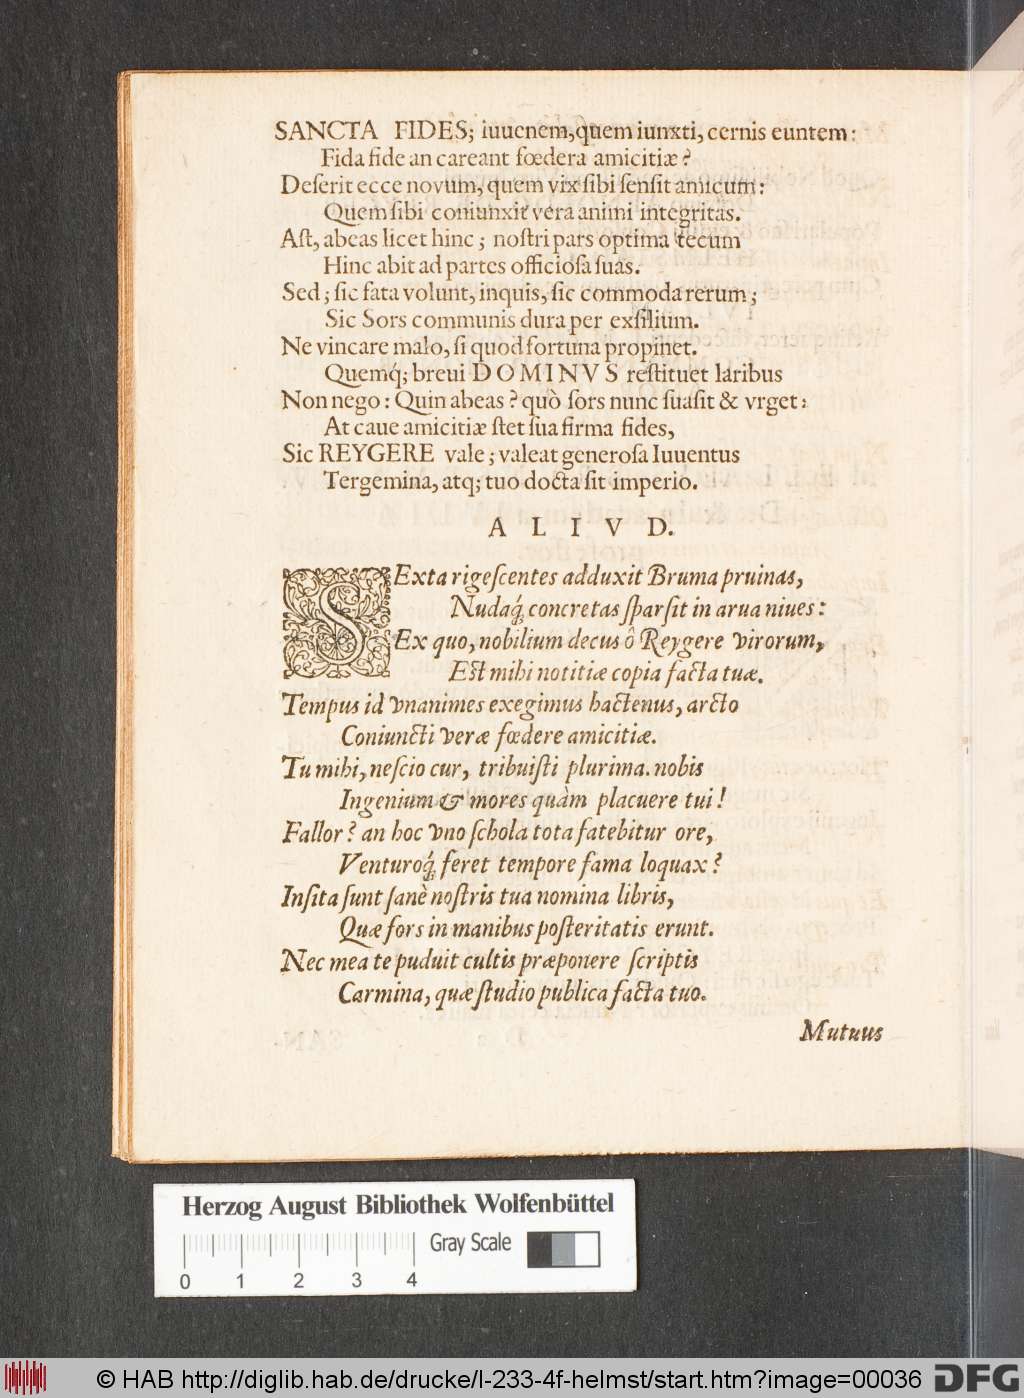 SANCTA FIDES; iuuenem, quem iunxti, cernis euntem:
Fida fide an careant fœdera amicitiæ?
Deſerit ecce novum, quem vix ſibi ſenſit amicum:
Quem ſibi coniunxit vera animi integritas.
Aſt, abeas licet hinc; noſtri pars optima tecum
Hinc abit ad partes officioſa ſuas.
Sed; ſic fata volunt, inquis, ſic commoda rerum;
Sic Sors communis dura per exſilium.
Ne vincare malo, ſi quod fortuna propinet.
Quemq́; breui DOMINVS reſtituet laribus
Non nego: Quin abeas? quò ſors nunc ſuaſit & vrget:
At caue amicitiæ ſtet ſua firma fides,
Sic REYGERE vale; valeat generoſa Iuuentus
Tergemina, atq; tuo docta ſit imperio.
ALIVD.
SExta rigeſcentes adduxit Bruma pruinas,
Nudaq́; concretas ſparſit in arua niues:
Ex quo, nobilium decus ô Reygere virorum,
Eſt mihi notitiæ copia facta tuæ.
Tempus id vnanimes exegimus hactenus, arcto
Coniuncti veræ fœdere amicitiæ.
Tu mihi, neſcio cur, tribuiſti plurima. nobis
Ingenium & mores quàm placuere tui!
Fallor? an hoc vno ſchola tota fatebitur ore,
Venturoq́; feret tempore fama loquax?
Inſita ſunt ſanè noſtris tua nomina libris,
Quæ fors in manibus poſteritatis erunt.
Nec mea te puduit cultis præponere ſcriptis
Carmina, quæ ſtudio publica facta tuo.
Mutuus
Herzog August Bibliothek Wolfenbüttel
Gray Scale
0 1 2 3 4
© HAB http://diglib.hab.de/drucke/l-233-4f-helmst/start.htm?image=00036
DFG